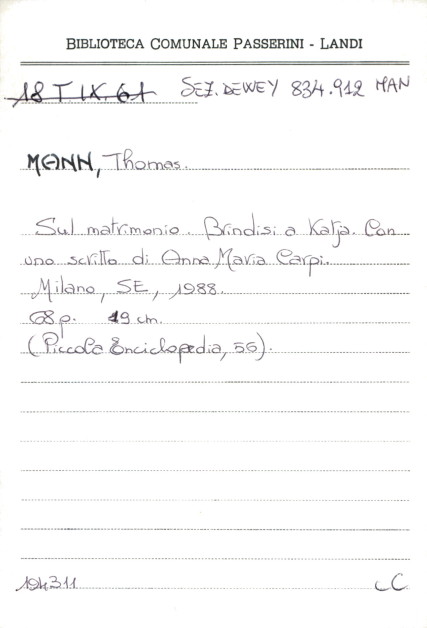 BIBLIOTECA COMUNALE PASSERINI - LANDI
18 T IX. 61 SEZ. DEWEY 834.912 MAN
MANN, Thomas.
Sul matrimonio. Brindisi a Katja. Con
uno scritto di Anna Maria Carpi.
Milano, SE, 1988.
68 p. 19 cm.
(Piccola Enciclopedia, 56).
194311 CC